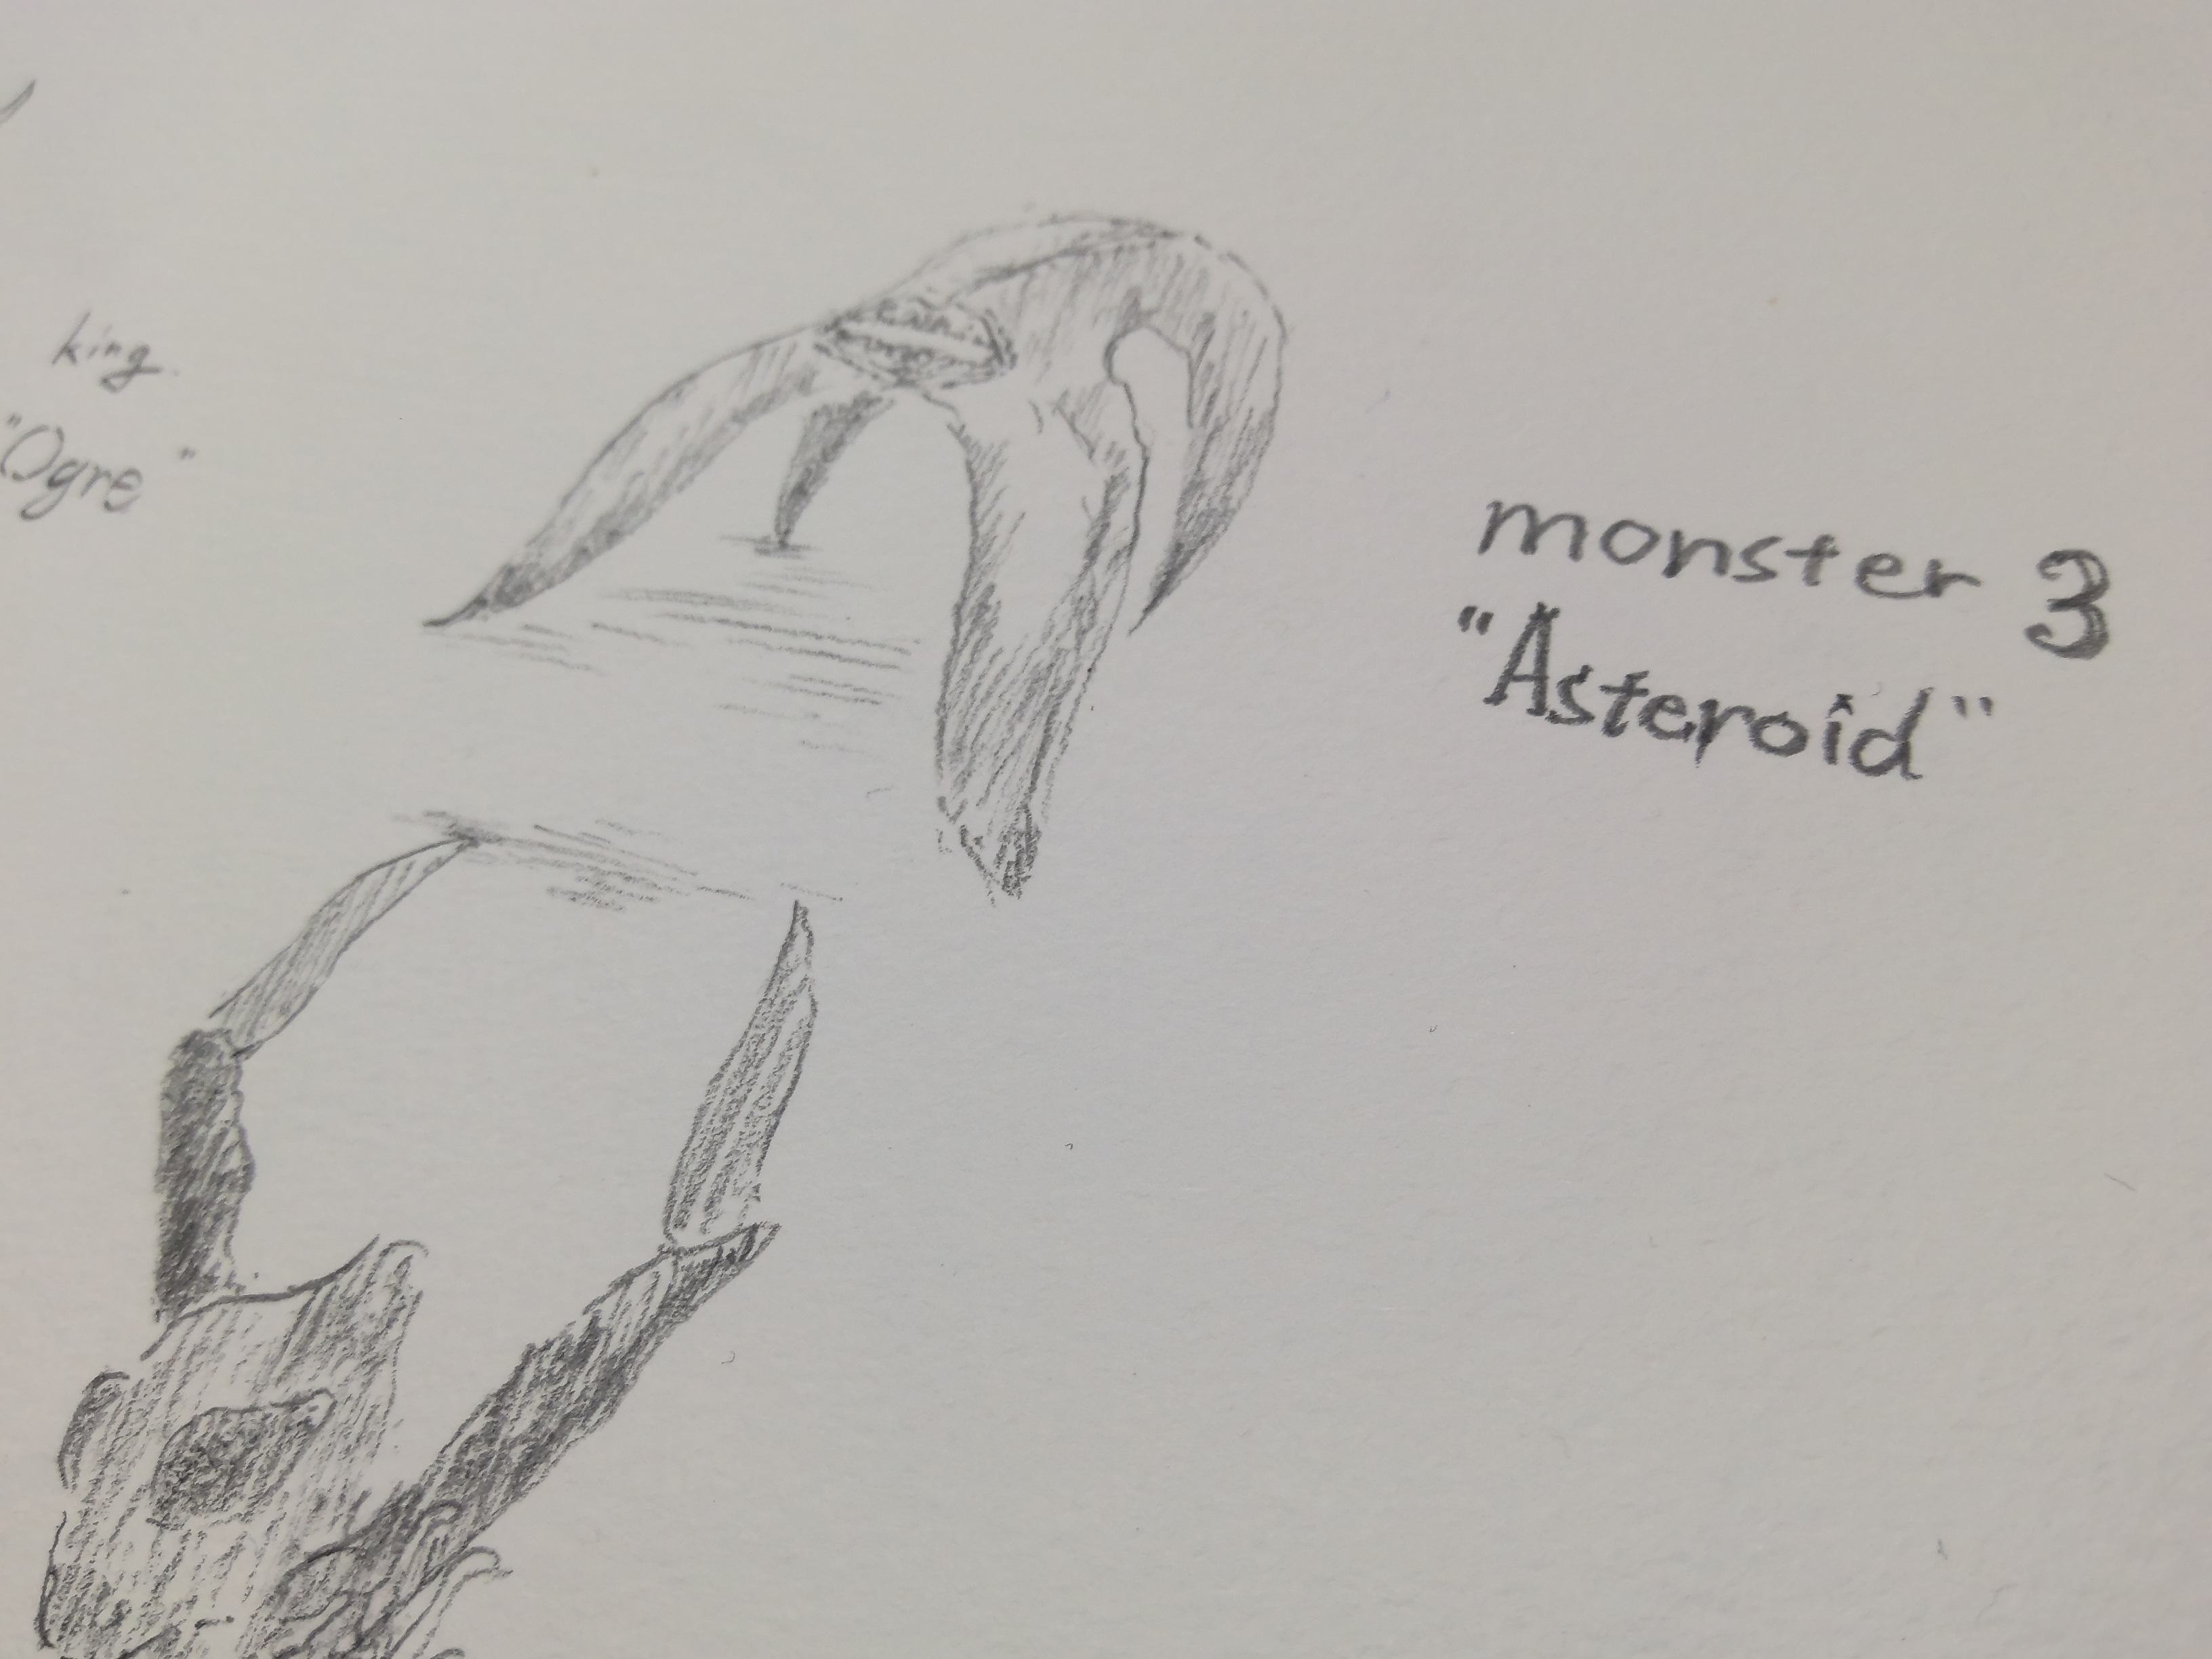 king
"Ogre"
monster 3
"Asteroid"